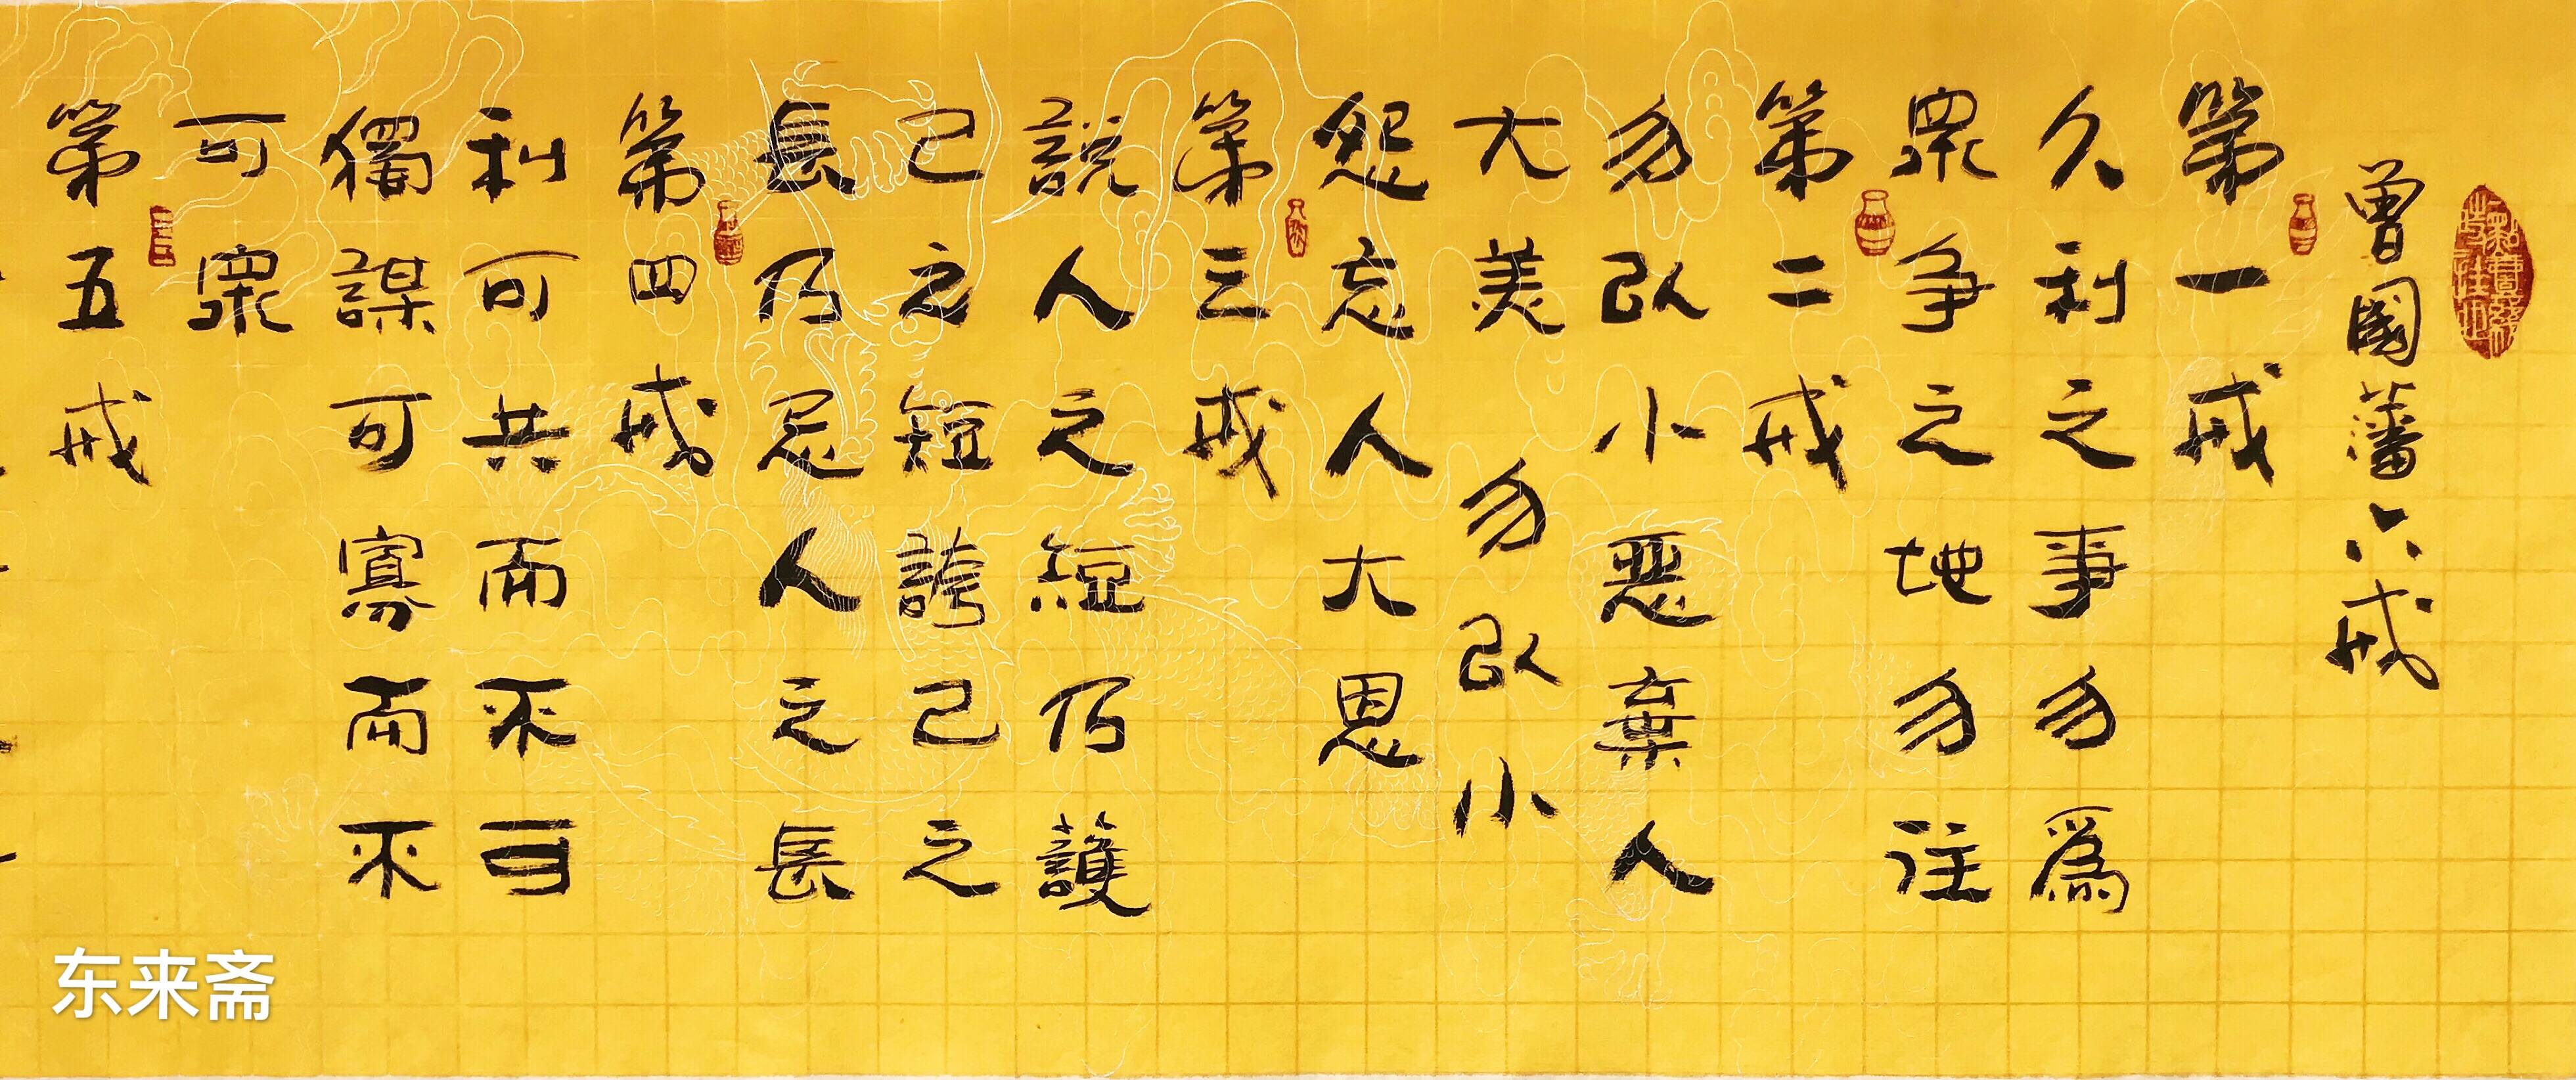 曾國藩六戒
第一戒
久利之事勿爲
眾争之地勿往
第二戒
勿以小惡棄人
大美 勿以小
怨忘人大恩
第三戒
說人之短乃護
己之短誇己之
長乃忌人之長
第四戒
利可共而不可
獨謀可寡而不
可眾
第五戒
东来斋